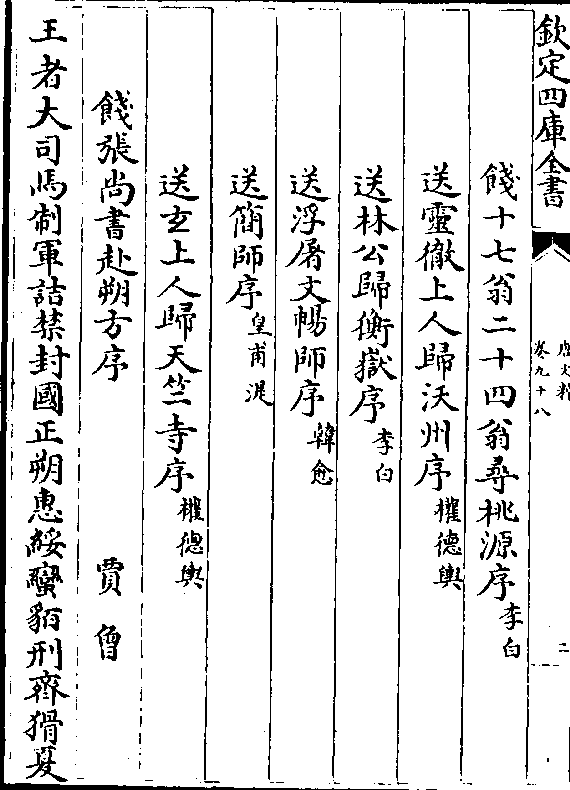 欽定四庫全書
唐文粹
卷九十八
二
餞十七翁二十四翁尋桃源序李白
送靈徹上人歸沃州序權德輿
送林公歸衡嶽序李白
送浮屠文暢師序韓愈
送簡師序皇甫湜
送玄上人歸天竺寺序權德輿
餞張尚書赴朔方序 賈曾
王者大司馬制軍詰禁封國正朔惠綏蠻貊刑齊猾夏